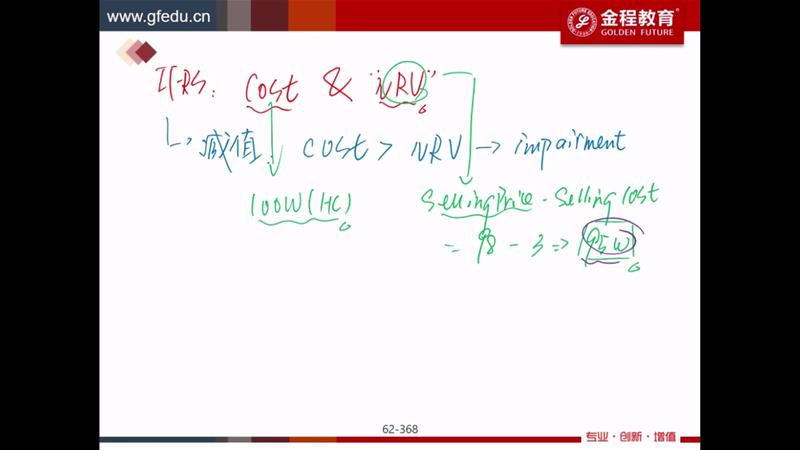 www.gfedu.cn
金程教育®
GOLDEN FUTURE
IFRS: Cost & "NRV"
减值 Cost > NRV → impairment
100W(HC)
Selling Price - Selling Cost
= 98 - 3 => 95W
62-368
专业·创新·增值